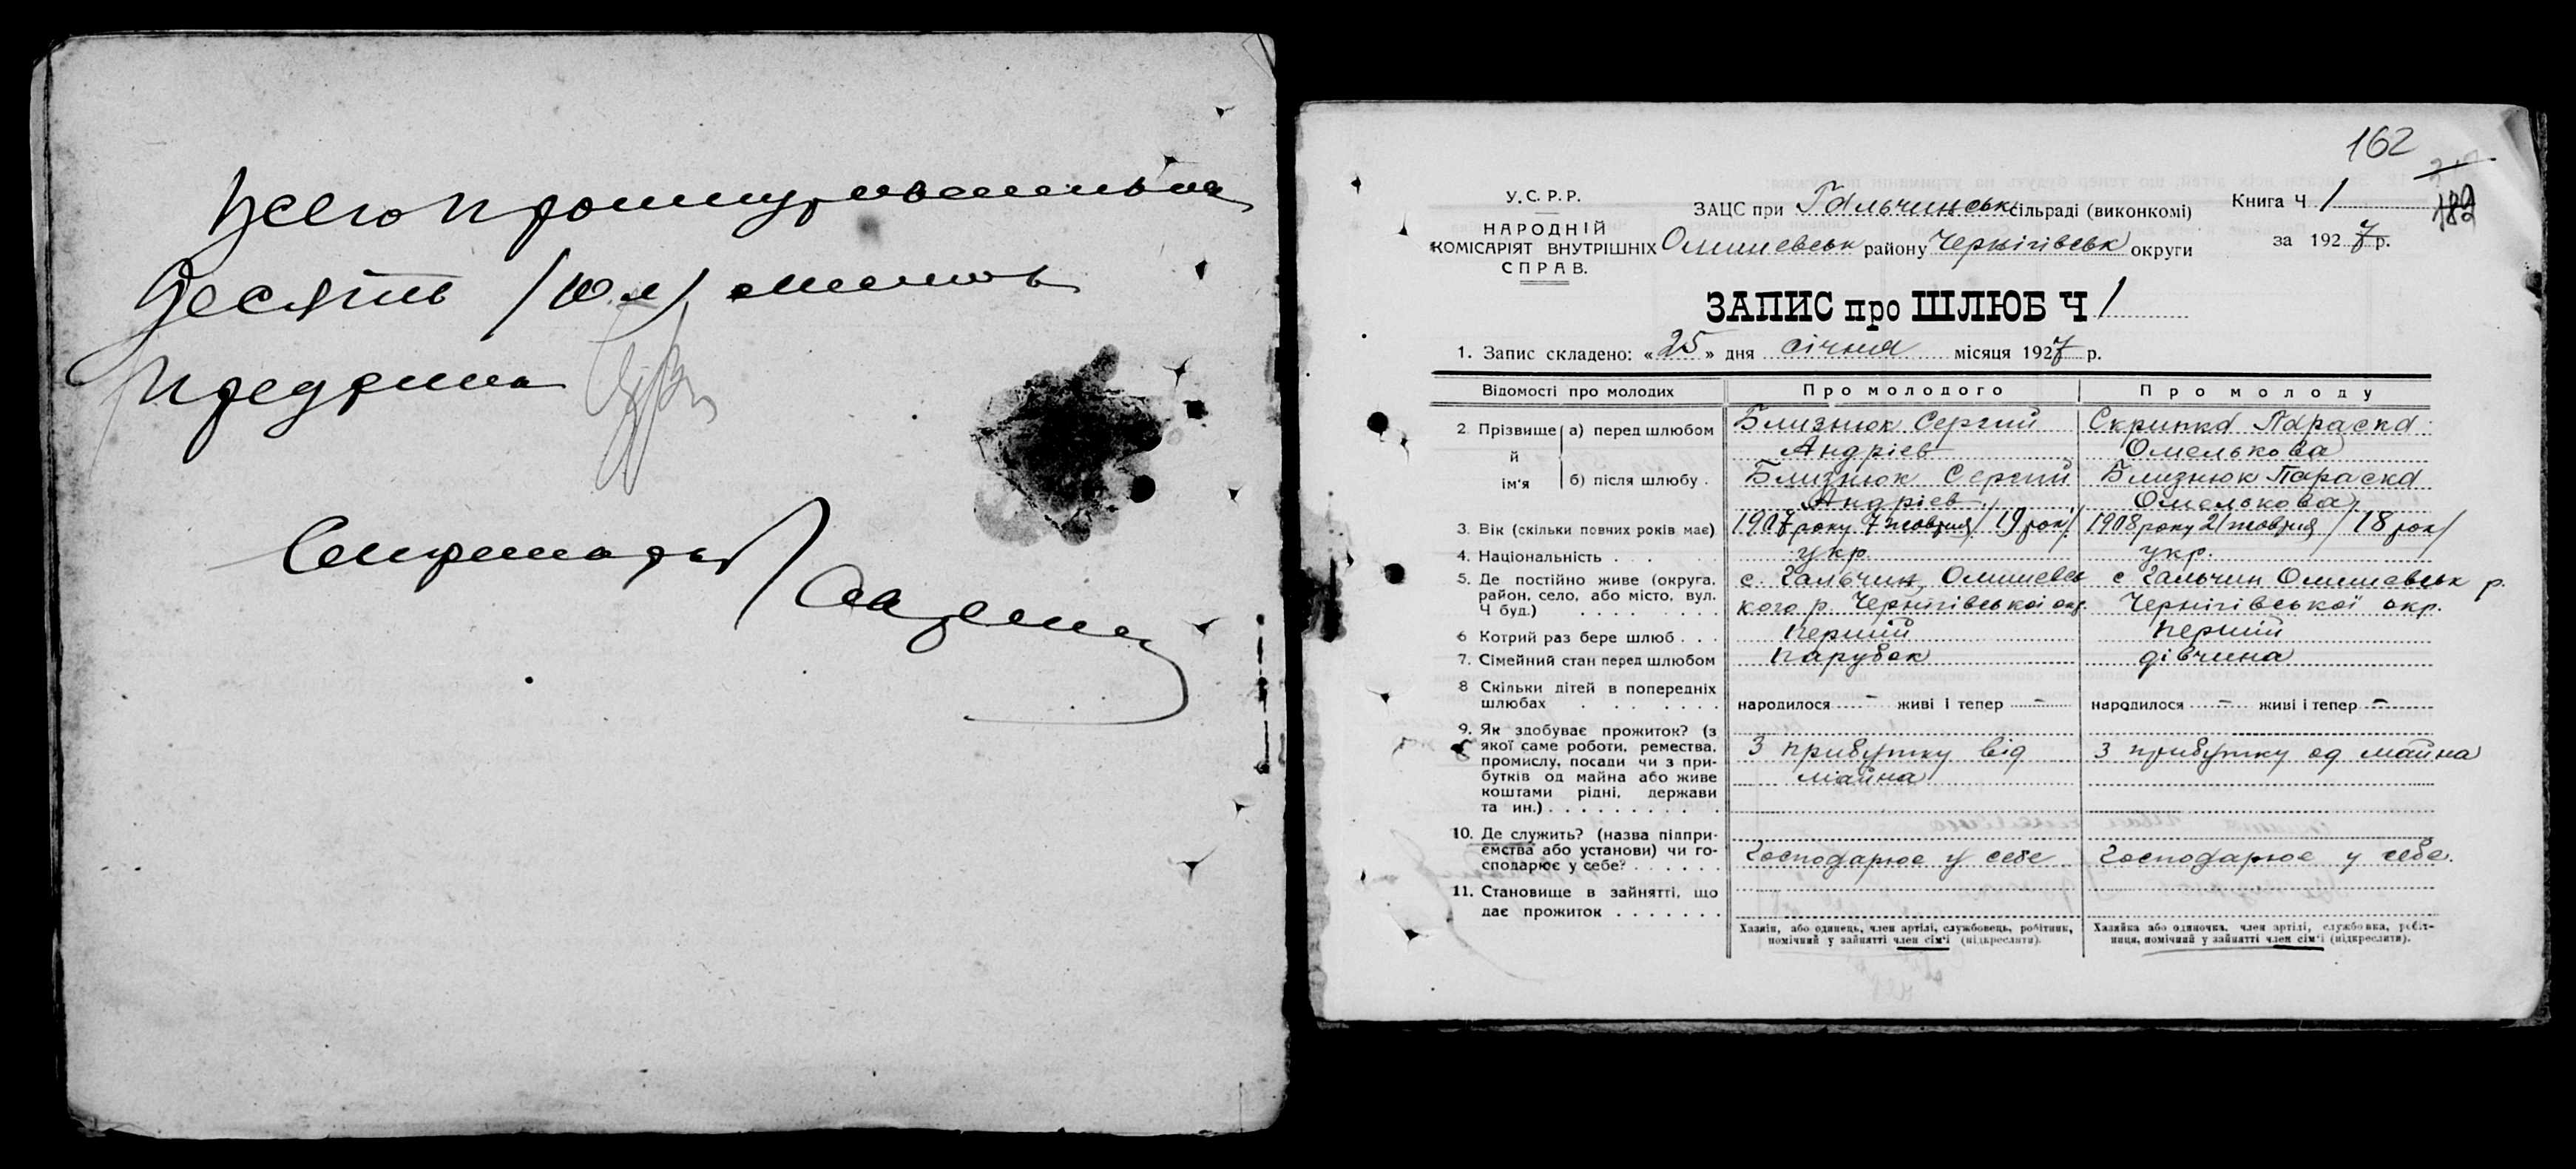 Всего прошнуровано
десять /10 л/ листов
Предрика
Секретарь
162
182
У.С.Р.Р.
НАРОДНІЙ
КОМІСАРІЯТ ВНУТРІШНІХ
СПРАВ.
ЗАЦС при Гальчинськ сільраді (виконкомі)
Олишевськ району Чернігівськ округи
Книга Ч 1
за 1927 р.
ЗАПИС про ШЛЮБ Ч 1
1. Запис складено: «25» дня січня місяця 1927 р.
Відомості про молодих
Про молодого
Про молоду
2 Прізвище й ім'я
а) перед шлюбом
Близнюк Сергий
Андріев
Скрипка Параска
Омелькова
б) після шлюбу .
Близнюк Сергий
Андріев
Близнюк Параска
Омелькова
3. Вік (скільки повних років має)
1907 року 7 жовтня /19 рок/
1908 року 21 жовтня /18 рок/
4. Національність . . .
укр.
укр.
5. Де постійно живе (округа,
район, село, або місто, вул.
Ч буд.) . . . . . . . .
с. Гальчин, Олишевсь
кого р. Чернігівської окр.
с Гальчин Олишевськ р.
Чернігівської окр.
6 Котрий раз бере шлюб . . .
перший
перший
7. Сімейний стан перед шлюбом
парубок
дівчина
8 Скільки дітей в попередніх
шлюбах . . . . . .
народилося – живі і тепер –
народилося – живі і тепер –
9. Як здобуває прожиток? (з
якої саме роботи, ремества,
промислу, посади чи з при-
бутків од майна або живе
коштами рідні, держави
та ин.) . . . . . . . . .
З прибутку від
майна
З прибутку од майна
10. Де служить? (назва підпри-
ємства або установи) чи го-
сподарює у себе? . . . . . .
Господарює у себе
Господарює у себе.
11. Становище в зайнятті, що
дає прожиток . . . . . . .
Хазяїн, або одинець, член артілі, службовець, робітник,
помічний у зайнятті член сім'ї (підкреслити).
Хазяйка або одиночка, член артілі, службовка, робіт-
ниця, помічний у зайнятті член сім'ї (підкреслити).